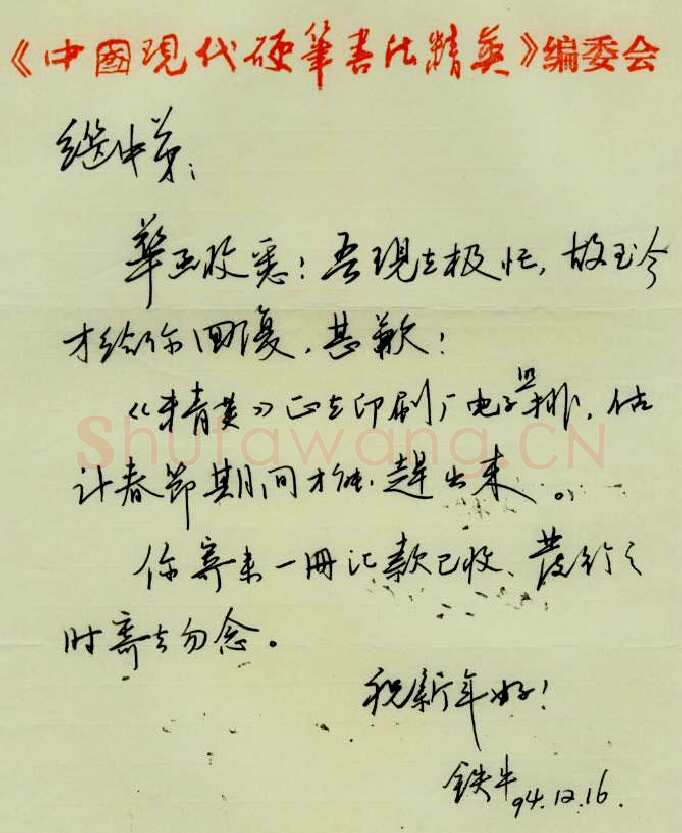 《中國現代硬筆書法精英》编委会
继中弟：
華函收悉！吾現在极忙，故至今
才给你回復，甚歉！
《精英》正在印刷厂电子照排，估
计春節期间才能趕出来。
你寄来一冊汇款已收、發行之
时寄去勿念。
祝新年好！
鉄牛 94.12.16.
Shufawang.CN